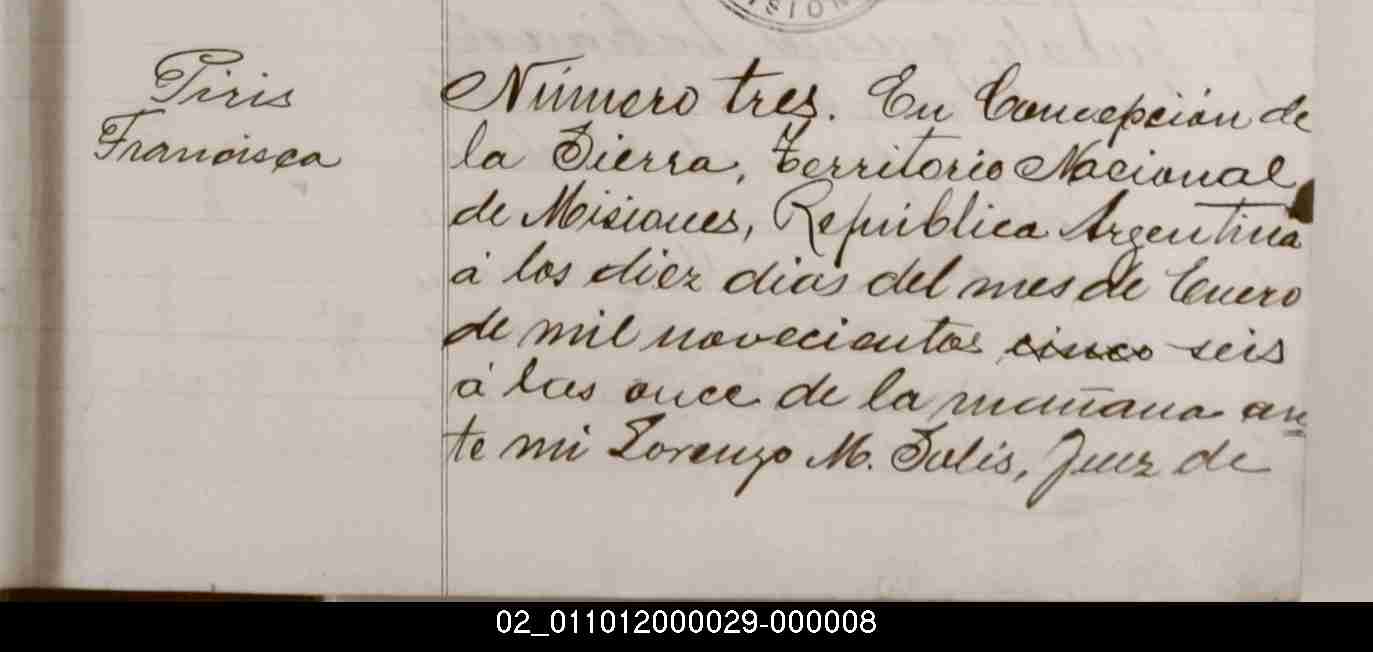 ISION
Piris
Francisca
Número tres. En Concepción de
la Sierra, Territorio Nacional
de Misiones, República Argentina
á los diez dias del mes de Enero
de mil novecientos cinco seis
á las once de la mañana an
te mi Lorenzo M. Solis, Juez de
02_011012000029-000008